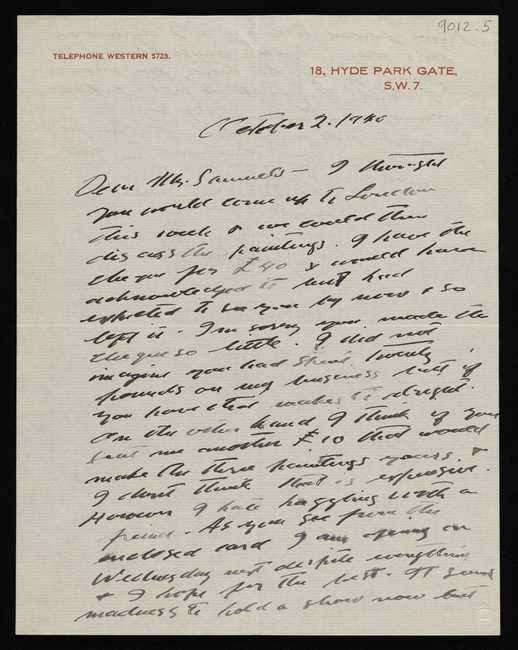 9012.5
TELEPHONE WESTERN 5723.
18, HYDE PARK GATE,
S.W.7.
October 2. 1940
Dear Mr. Samuels – I thought
you would come up to London
this week & we could then
discuss the paintings. I have the
cheque for £40 & would have
acknowledged it but had
expected to see you by now & so
left it. I'm sorry you made the
cheque so little. I did not
imagine you had spent twenty
pounds on my business but if
you have that makes it alright.
On the other hand I think if you
sent me another £10 that would
make the three paintings yours. &
I don't think that is expensive.
However I hate haggling with a
friend. As you see from the
enclosed card I am opening on
Wednesday next despite everything
& I hope for the best. It seems
madness to hold a show now but